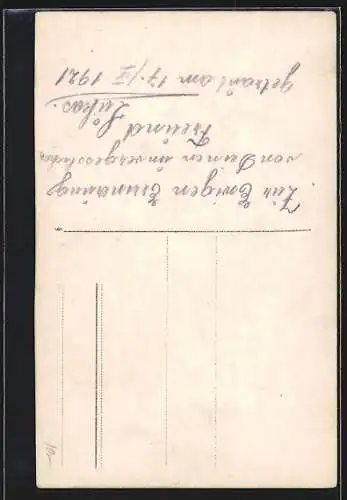 Zur Ewigen Erinnerung
von Deinen unvergesslichen
Freund
Lukas.
getraut am 17./IV 1921
10,-